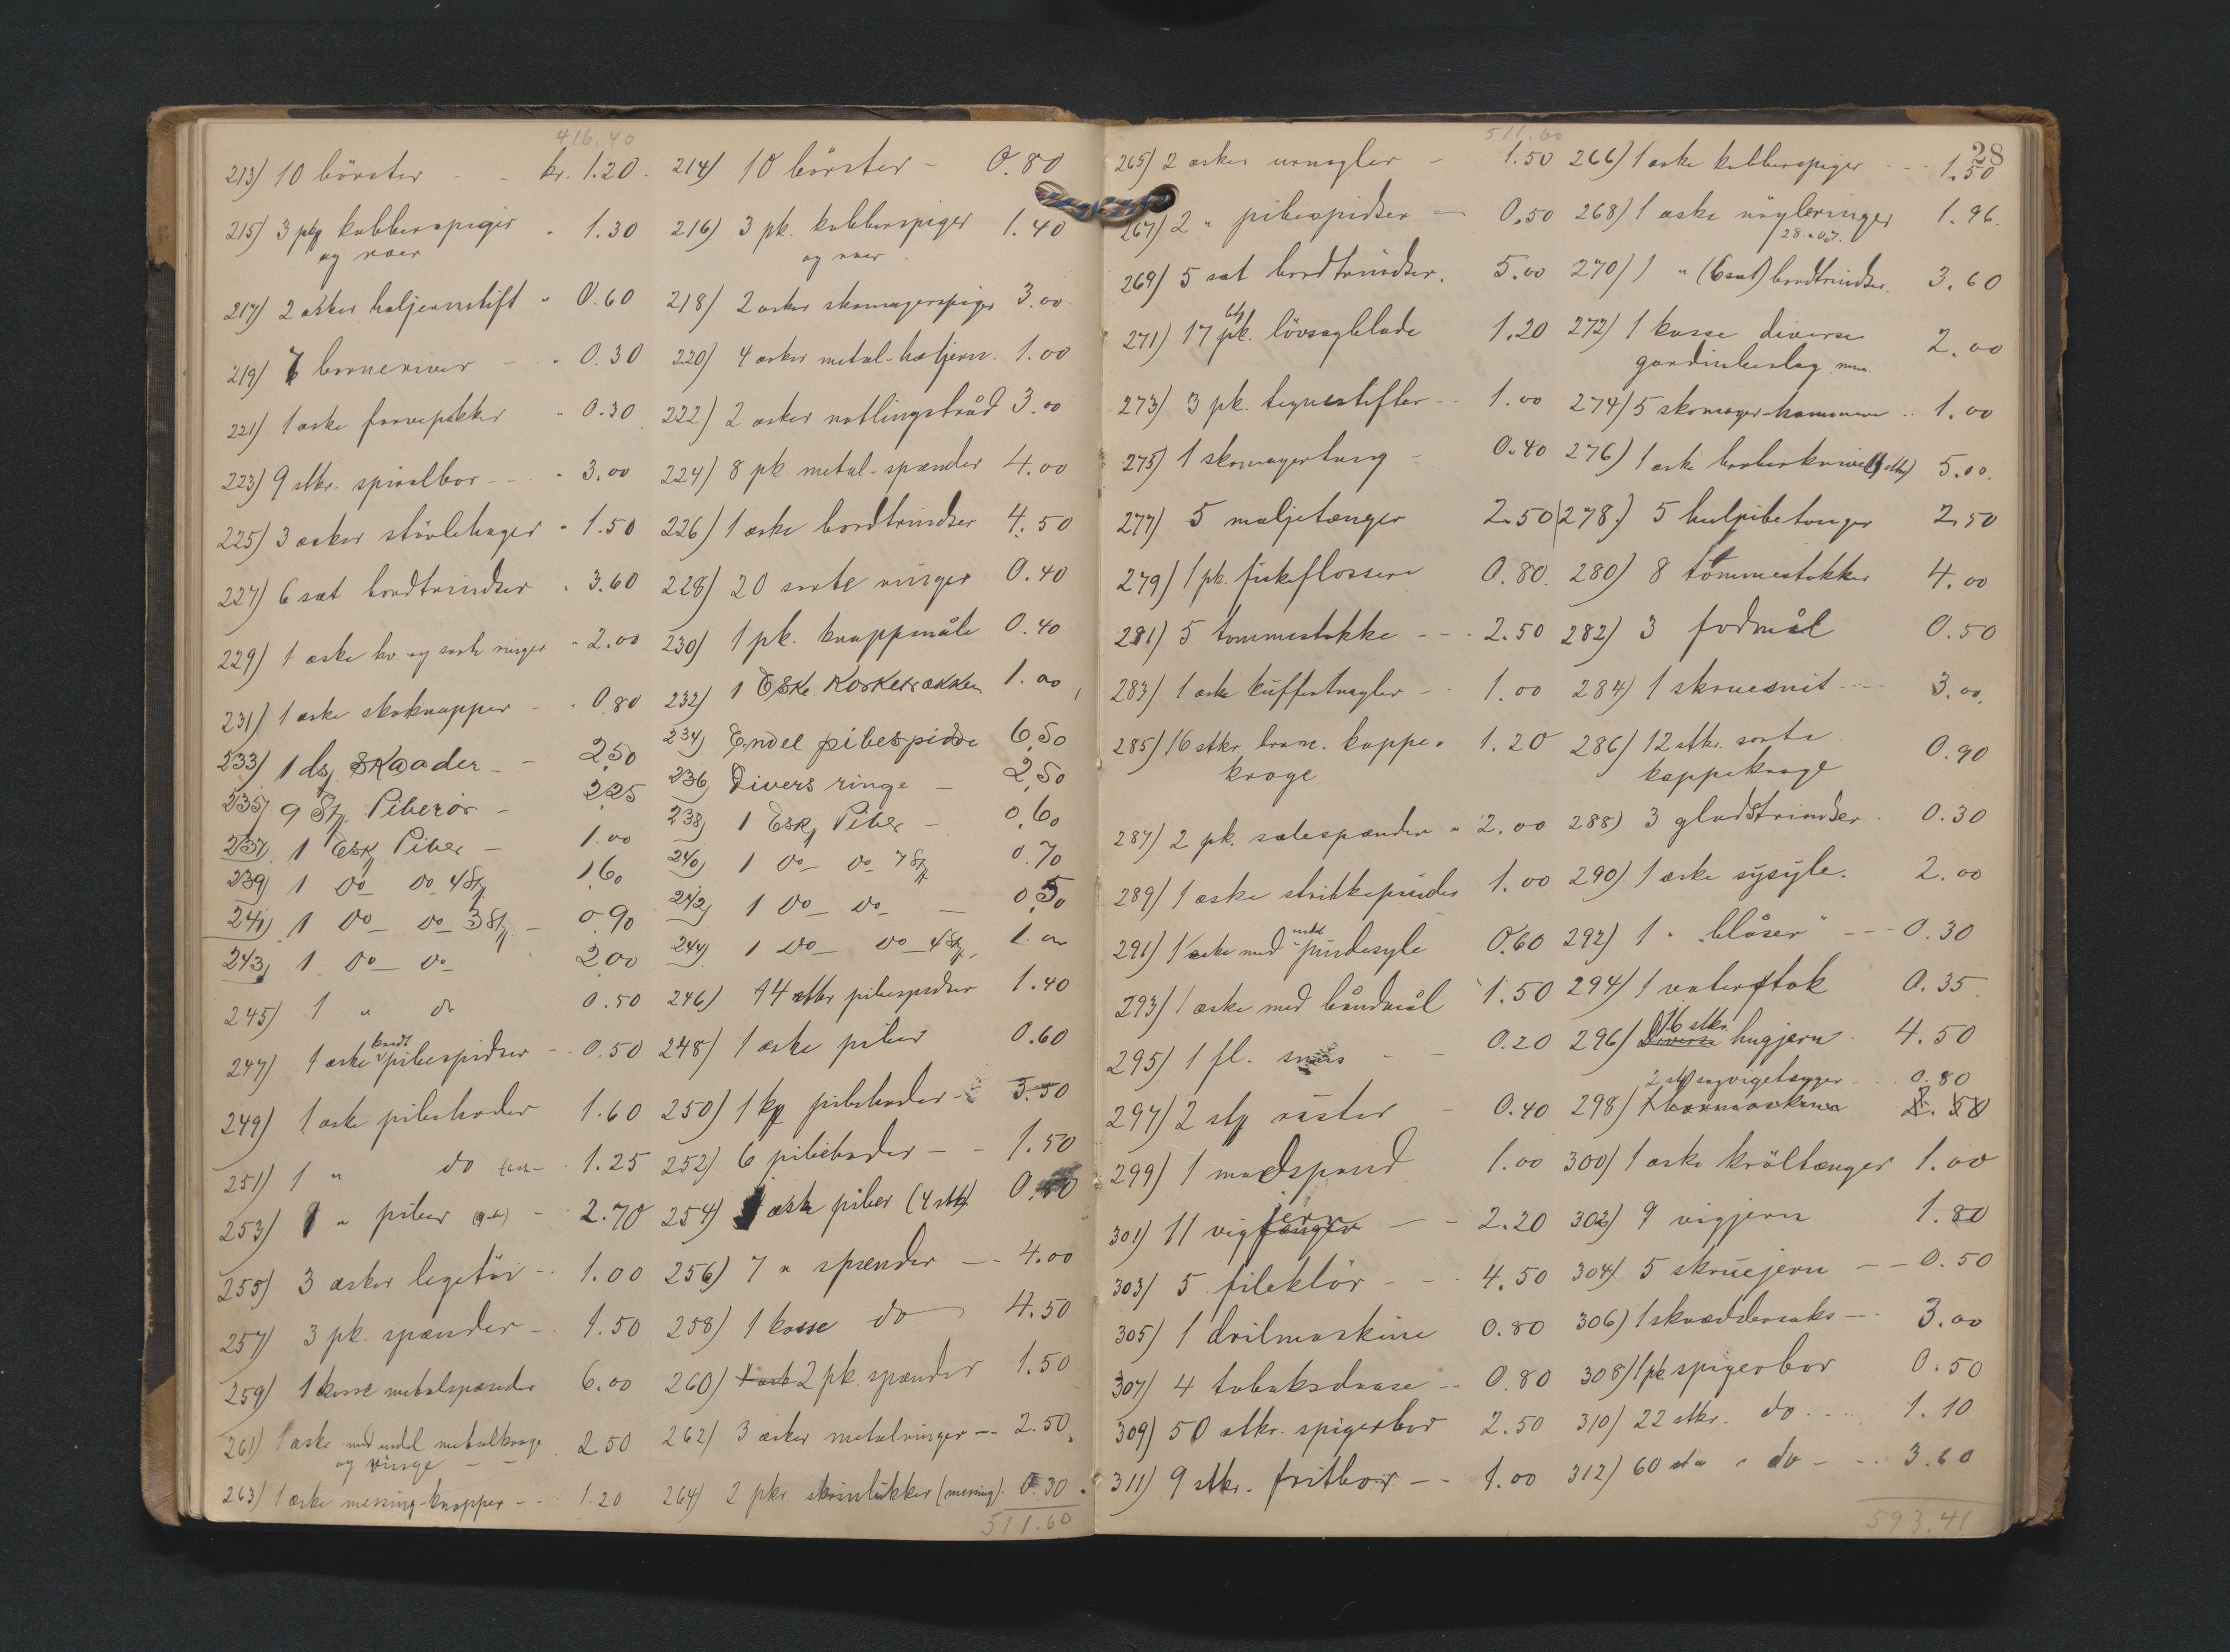 416.40
213) 10 börster - - kr. 1.20. 214) 10 börster - 0.80
215) 3 pk kobberspiger " 1.30 216) 3 pk. kobberspiger 1.40
og roer og roer
217) 2 æsker heljernstift " 0.60 218) 2 æsker skomagerspiger 3.00
219) 7 barneriver - " 0.30 220) 4 æsker metal-hæljern. 1.00
221) 1 æske farvepakker " 0.30 222) 2 æsker netlingstråd 3.00
223) 9 stkr. spiralbor - - " 3.00 224) 8 pk. metal-spænder 4.00
225) 3 æsker stövlehager " 1.50 226) 1 æske bordtrindser 4.50
227) 6 sæt bordtrindser " 3.60 228) 20 sorte ringer 0.40
229) 1 æske hv. og sorte ringer " 2.00 230) 1 pk. knappenåle 0.40
231) 1 æske skoknapper - " 0.80 232) 1 Eske Korketrækker 1.00
233) 1 ds. Skaader - - 2,50 234) Endel pibespidse 6,50
235) 9 St. Piberör - 2,25 236) Divers ringe - 2,50
237) 1 Esk Piber - 1.00 238) 1 Esk Piber - 0,60
239) 1 Do - Do 4 St 1,60 240) 1 Do - Do 7 St 0.70
241) 1 Do - Do 3 St - 0.90 242) 1 Do - Do - 0,50
243) 1 Do - Do - 2,00 244) 1 Do - Do 4 St, 1.00
245) 1 " do 0.50 246) 14 stkr pibespidser 1.40
247) 1 æske pibespidser - 0.50 248) 1 æske piber 0.60
249) 1 æske pibehoder 1.60 250) 1 pibehoder - 3.50
251) 1 " do 1.25 252) 6 pibehoder - - 1.50
253) 1 " piber - 2.70 254) 1 æske piber (4 stk)
255) 3 æsker legetöi - 1.00 256) 7 " spænder - - 4.00
257) 3 pk. spænder - 1.50 258) 1 kasse do 4.50
259) 1 kasse metalspænder 6.00 260) 1 æske 2 pk. spænder 1.50
261) 1 æske med endel metalkroge 2.50 262) 3 æsker metalringer - - 2.50
og ringe - -
263) 1 æske messing-knapper - - 1.20 264) 2 pkr. skrinlükker (messing) 0.30
511.60
511.60
28
265) 2 æsker urnøgler - 1.50 266) 1 æske kobberspiger - - 1.50
267) 2 " pibespidser - 0.50 268) 1 æske nögleringer 1.96.
269) 5 sæt bordtrindser. 5.00 270) 1 " (6 sæt) bordtrindser. 3.60
271) 17 pk. lövsagblade 1.20 272) 1 kasse diverse 2.00
gardinbeslag m.m.
273) 3 pk. tegnestifter - - 1.00 274) 5 skomager-hammere - - 1.00
275) 1 skomagertang - 0.40 276) 1 æske barberknive 5.00.
277) 5 maljetænger 2.50 278.) 5 hulpibetænger 2.50
279) 1 pk. fiskeflossere 0.80. 280) 8 tommestokke 4.00
281) 5 tommestokke - - - 2.50 282) 3 fodmål 0.50
283) 1 æske küffertnagler - - 1.00 284) 1 skruesnit - - - 3.00.
285) 16 stkr. brune. kappe- 1.20 286) 12 stkr. sorte 0.90
kroge kappekroge
287) 2 pk. salespænder " 2.00 288) 3 gladstrindser 0.30
289) 1 æske strikkepinder 1.00 290) 1 æske sysyle. 2.00
291) 1 æske med endel pindesyle 0.60 292) 1 " "blåser" - - - 0.30
293) 1 æske med båndmål 1.50 294) 1 vaterstok 0.35
295) 1 fl. - - 0.20 296) Diverse 16 stkr. hugjern 4.50
297) 2 stk rister - 0.40 298) 2 stk sagvigetænger - 0.80
299) 1 madspand 1.00 300) 1 æske kröltænger 1.00
301) 11 vigtænger jern - - 2.20 302) 9 vigjern 1.80
303) 5 fileklör - - 4.50 304) 5 skruejern - - 0.50
305) 1 drilmaskine 0.80 306) 1 skræddersaks - - - 3.00
307) 4 tobaksdaase - - 0.80 308) 1 pk. spigerbor 0.50
309) 50 stkr. spigerbor 2.50 310) 22 stkr. do - - 1.10
311) 9 stkr. fritbor - - 1.00 312) 60 " do - - - 3.60
593.41